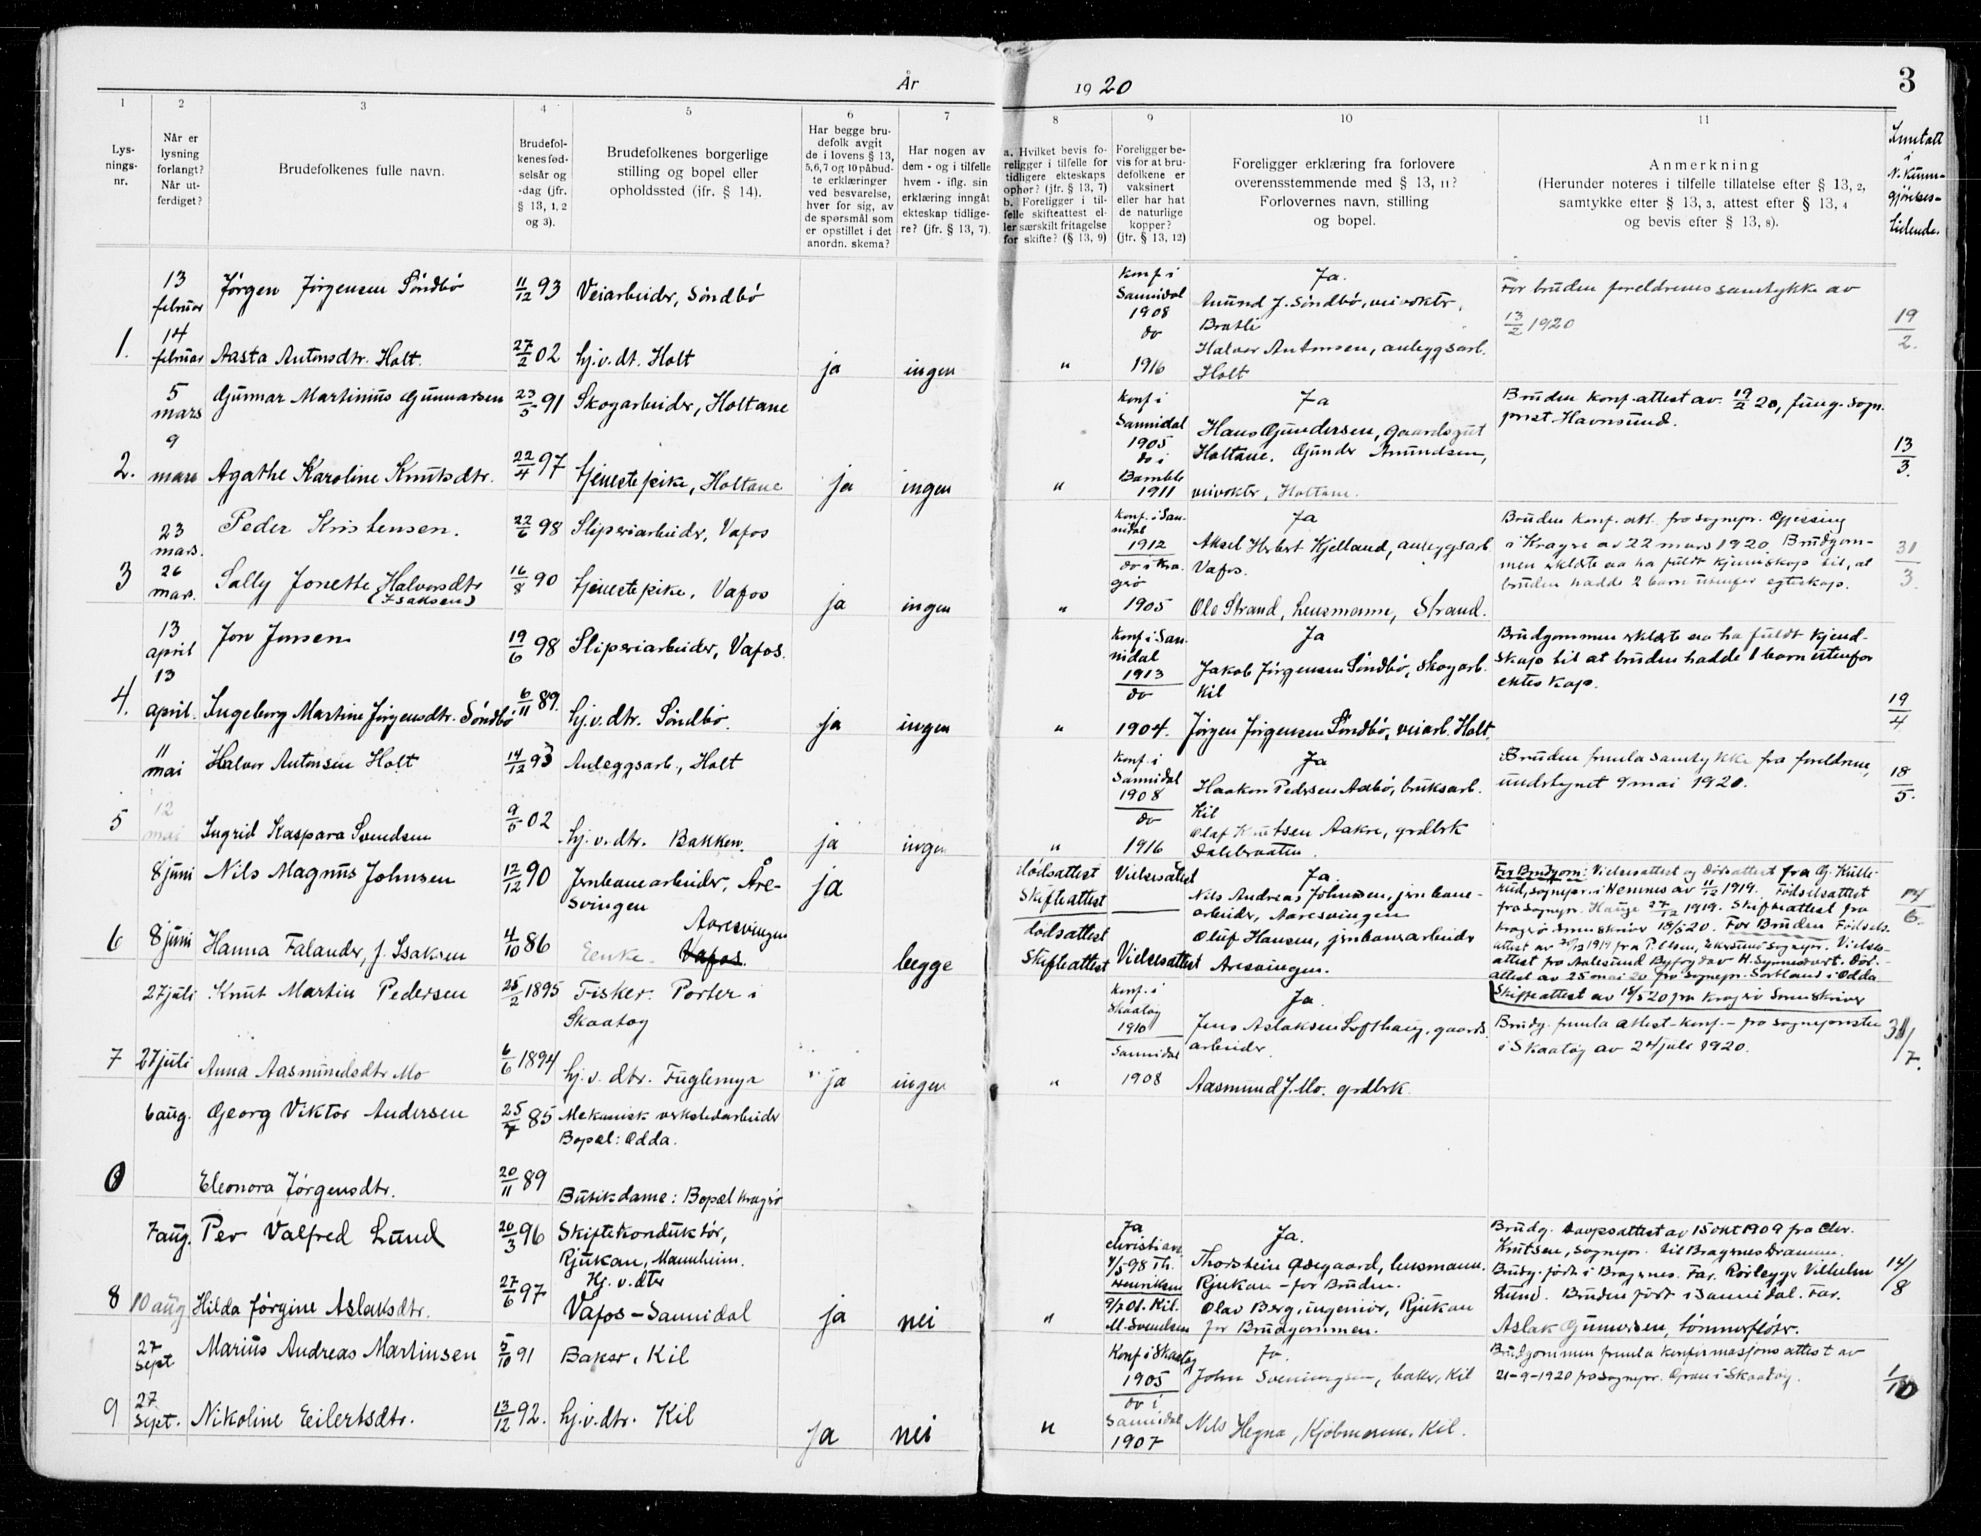 År
1920
3
1
2
3
4
5
6
7
8
9
10
11
Lys-
nings-
nr.
Når er
lysning
forlangt?
Når ut-
ferdiget?
Brudefolkenes fulle navn.
Brudefol-
kenes fød-
selsår og
-dag (jfr.
§ 13, 1, 2
og 3).
Brudefolkenes borgerlige
stilling og bopel eller
opholdssted (jfr. § 14).
Har begge bru-
defolk avgit
de i lovens § 13,
5,6,7 og 10 påbud-
te erklæringer
ved besvarelse,
hver for sig, av
de spørsmål som
er opstillet i det
anordn. skema?
Har nogen av
dem - og i tilfelle
hvem - iflg. sin
erklæring inngått
ekteskap tidlige-
re? (jfr. § 13, 7).
a. Hvilket bevis fo-
religger i tilfelle for
tidligere ekteskaps
ophor? (jfr. § 13, 7)
b. Foreligger i til-
felle skifteattest el-
ler særskilt fritagelse
for skifte? (§ 13, 9)
Foreligger be-
vis for at bru-
defolkene er
vaksinert
eller har hat
de naturlige
kopper?
(jfr. § 13, 12)
Foreligger erklæring fra forlovere
overensstemmende med § 13, 11?
Forlovernes navn, stilling
og bopel.
Anmerkning
(Herunder noteres i tilfelle tillatelse efter § 13, 2,
samtykke efter § 13, 3, attest efter § 13, 4
og bevis efter § 13, 8).
Inntatt
i
N. Kunn-
gjörelses-
tidende.
13
februar
Jørgen Jørgensen Söndbö
11/12 93
Veiarbeider, Söndbö
Konf. i
Sannidal
1908
do
Ja.
Amund J. Söndbö, veivokter,
Bratli
For bruden foreldrenes samtykke av
13/2 1920
1.
14
februar
Aasta Antonsdtr. Holt.
27/2 02
hj.v.dt. Holt
ja
ingen
"
1916
Halvor Antonsen, anleggsarb.
Holt
19/2.
5
mars
Gunnar Martinius Gunnarsen
23/5 91
Skogarbeider, Holtane
Konf i
Sannidal
1905
do i
Ja
Hans Gundersen, gaardsgut
Holtane. Gunder Amundsen,
Bruden konf. attest av. 19/2 20, fung. sogn.
prest Havnsund.
2.
9
mars
Agathe Karoline Knutsdtr.
22/4 97
tjenestepike, Holtane
ja
ingen
"
Bamble
1911
veivokter, Holtane.
13/3.
23
mars.
Peder Kristensen.
22/6 98
Sliperiarbeider, Vafos
Konf. i San-
nidal
1912
Ja
Aksel Herbert Kjelland, anleggsarb
Vafos.
Bruden konf. att. fra sognepr. Gjessing
i Kragrø av 22 mars 1920. Brudgom-
men erklærte aa ha fuldt kjennskap til, at
bruden hadde 2 barn utenfor egteskap.
3
26
mar.
Sally Jonette Halvorsdtr
(Isaksen)
16/8 90
tjenestepike, Vafos
ja
ingen
"
do i Kra-
gerø
1905
Ole Strand, lensmann, Strand.
31/3.
13
april
Jon Jensen
19/6 98
Sliperiarbeider, Vafos.
Konf i San-
nidal
1913
Ja
Jakob Jørgensen Söndbö, skogarb.
Kil
Brudgommen erklærte aa ha fuldt kjend-
skap til at bruden hadde 1 barn utenfor
ekteskap.
4.
13
april.
Ingeborg Martine Jørgensdtr. Söndbö
6/11 89.
hj.v.dtr. Söndbö.
ja
ingen
"
do
1904.
Jørgen Jørgensen Söndbö, veiarb. Holt.
19/4
11
mai
Halvor Antonsen Holt
14/12 93
Anleggsarb, Holt
Konf. i
Sannidal
1908
Ja
Haakon Pedersen Aasbö, bruksarb.
Kil
Bruden fremla samtykke fra foreldrene,
undertegnet 9 mai 1920.
18/5.
5
12
mai
Ingrid Kaspara Svendsen
9/5 02
hj.v.dtr. Bakken.
ja
ingen
"
do
1916
Olaf Knutsen Aakre, grdbrk
Dalebraaten
8 juni
Nils Magnus Johnsen
12/12 90
Jernbanearbeider, Åre-
svingen
ja
dödsattest
Skifteattest
Vielsesattest
Ja.
Nils Andreas Johnsen, jernbane-
arbeider, Aaresvingen
For Brudgom: Vielsesattest og Dödsattest fra G. Kulle-
rud, sognepr. i Hemnes av 11/12 1919. Fødselsattest
fra sognepr. Hauge 27/12 1919. Skifteattest fra
Kragrö Sorenskriver 18/5 20. For Bruden Fødsels-
6
8 juni
Hanna Falander, f. Isaksen
4/10 86
Aaresvingen
Enke. Vafos.
begge
dødsattest
Skifteattest
Vielsesattest
Oluf Hansen, jernbanearbeider
Aresvingen.
attest fra Aalesund Byfogd av H. Synnestvedt. Död-
attest av 25 mai 20 fra sognepr. Sortland i Odda
Skifteattest av 18/5 20 fra Kragrø Sorenskriver
14/6.
27 juli
Knut Martin Pedersen
25/2 1895
Fisker. Porter i
Skaatøy
Konf. i
Skaatøy
1910
Ja.
Jens Aslaksen Lofthaug, gaards
arbeider.
Brudg. fremla attest-konf.- fra sogneprsten
i Skaatøy av 24 juli 1920.
7
27 juli
Anna Aasmundsdtr Mo
6/6 1894
hj.v.dtr. Fuglemyr
ja
ingen
"
Sannidal
1908
Aasmund J. Mo. grdbrk
31/7.
6 aug.
Georg Viktor Andersen
25/7 85
Mekanisk verkstedarbeider
Bopæl: Odda.
0
Eleonora Jørgensdtr.
20/11 89
Butikdame: Bopæl Kragrø
7 aug.
Per Valfred Lund
20/3 96
Skiftekonduktör,
Rjukan, Mannheim.
Ja
Christian.
4/5-98 Th.
Henriksen
Ja.
Thorstein Øsegaard, lensmann.
Rjukan - for Bruden.
Brudg. daapsattest av 15 okt 1909 fra Chr.
Knutsen, sognepr. til Bragernes Drammen.
Brudg. født i Bragernes. Far. Rörlegger Vilhelm
Lund. Bruden født i Sannidal. Far.
8
10 aug
Hilda Jørgine Aslaksdtr.
27/6 97
Hj. v. dtr
Vafos-Sannidal
ja
nei
"
9/2 01. Kil.
M. Svendsen
Olav Berg, ingeniør, Rjukan
for Brudgommen.
Aslak Gunnersen, tömmerfløter.
14/8
27
sept
Marius Andreas Martinsen
5/10 91
Baker, Kil
Konf i Skaatøy
1905
Ja.
John Svenningsen, baker, Kil
Brudgommen fremla konfirmasjonsattest av
21-9-1920 fra sognepr. Gran i Skaatøy.
1/10
9
27
Sept.
Nikoline Eilertsdtr.
13/12 92.
hj.v.dtr. Kil
ja
nei
"
do i
Sannidal
1907
Nils Hegna, Kjøbmann. Kil.